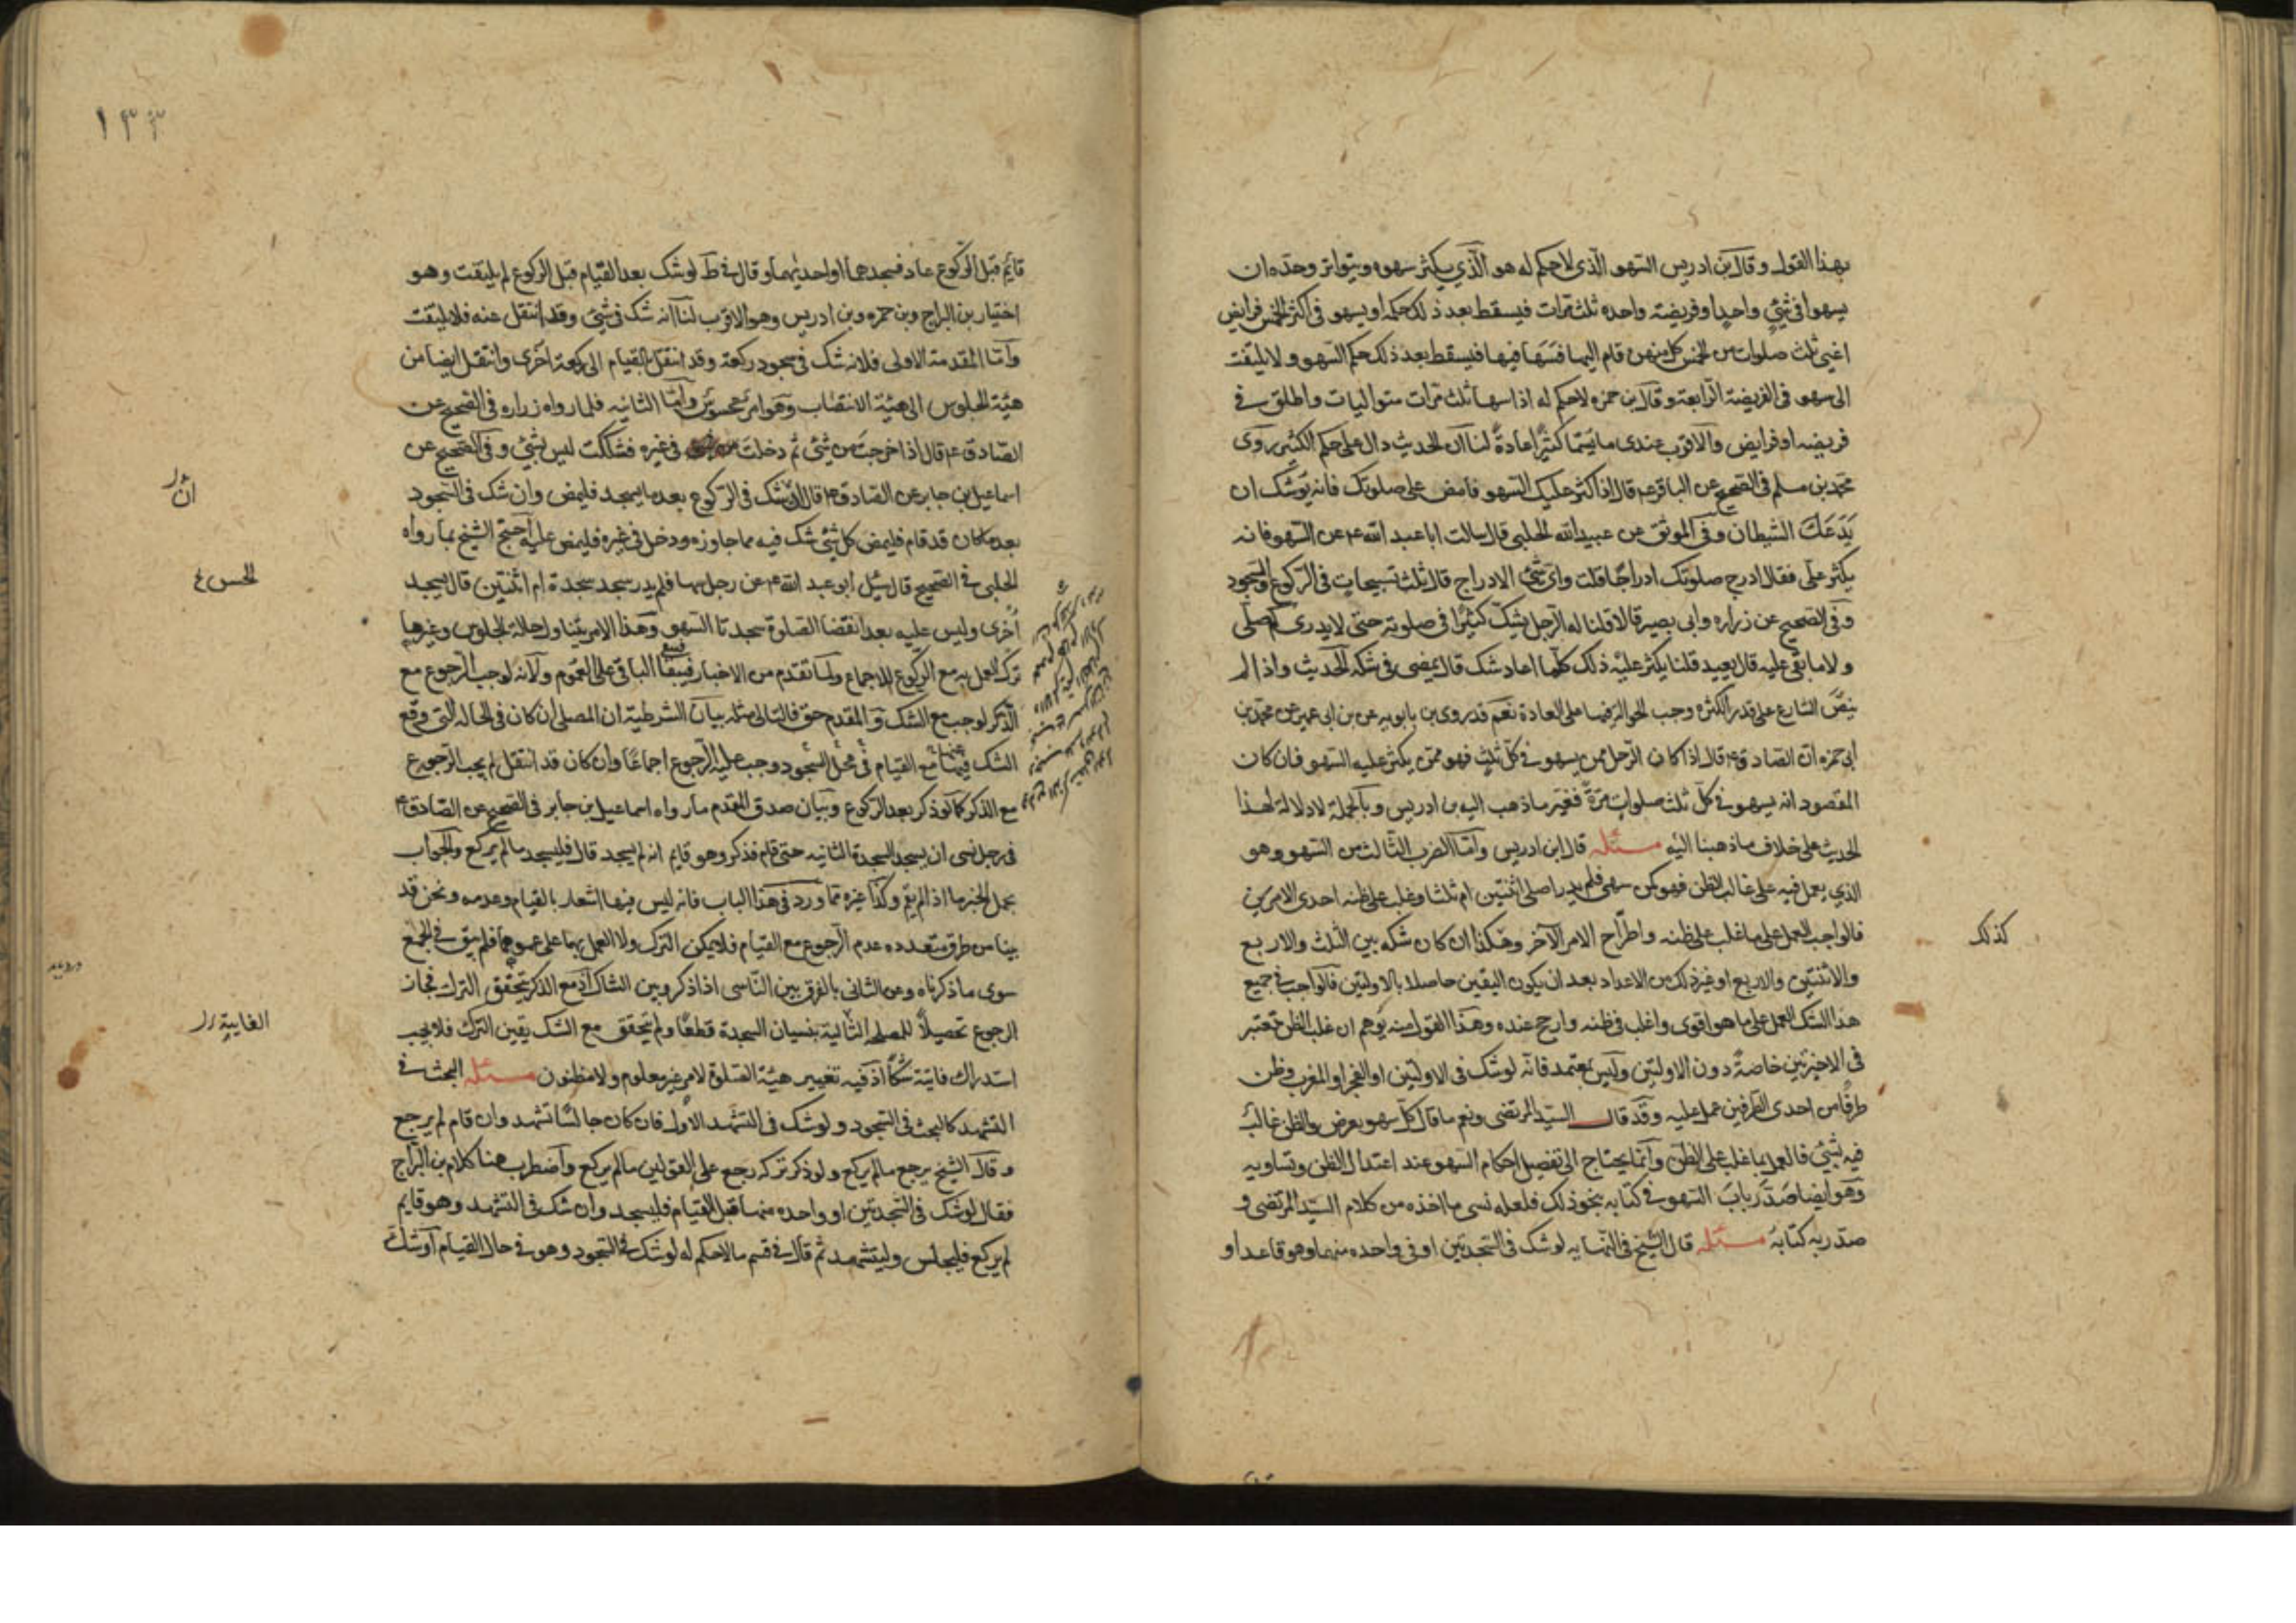 بهذا القول وقال ابن ادريس السهو الذى لا حكم له هو الذي يكثر سهوه ويتواتر وحده ان
يسهوا فى شئ واحدا وفريضته واحده ثلث مرات فيسقط بعد ذلك حكمه او يسهو فى اكثر الخمس فرايض
اعنى ثلث صلوات من الخمس كل منهن قام اليها فسها فيها فيسقط بعد ذلك حكم السهو ولا يلتفت
الى سهو فى الفريضة الرابعة وقال ابن حمزه لا حكم له اذا سها ثلث مرات متواليات واطلق فى
فريضه او فرايض والاقرب عندى ما يسمى كثيرا عادة لنا ان الحديث دال على حكم الكثير روى
محمد بن مسلم فى الصحيح عن الباقر ع قال اذا كثر عليك السهو فامض على صلوتك فانه يوشك ان
يدعك الشيطان وفى الموثق عن عبيد الله الحلبى قال سالت ابا عبد الله ع عن السهو فانه
يكثر على فقال ادرج صلوتك ادراجا قلت واى شئ الادراج قال ثلث تسبيحات فى الركوع والسجود
وفى الصحيح عن زراره وابى بصير قالا قلنا له الرجل يشك كثيرا فى صلوته حتى لا يدرى كم صلى
ولا ما بقى عليه قال يعيد قلنا يكثر عليه ذلك كلما اعاد شك قال يمضى فى شكه الحديث واذا لم
ينص الشارع على قدر الكثره وجب الحوالة فيها على العادة نعم قد روى بن بابويه عن بن ابى عمير عن محمد بن
ابى حمزه ان الصادق ع قال اذا كان الرجل ممن يسهو فى كل ثلث فهو ممن يكثر عليه السهو فان كان
المقصود انه يسهو فى كل ثلث صلوات مرة فغير ما ذهب اليه بن ادريس وبالجملة لا دلالة لهذا
الحديث على خلاف ما ذهبنا اليه مسئله قال ابن ادريس واما الضرب الثالث من السهو وهو
الذي يعمل فيه على غالب الظن فهو كمن سهى فلم يدر اصلى اثنتين ام ثلثا وغلب على ظنه احدى الامرين
فالواجب العمل على ما غلب على ظنه واطراح الامر الآخر وهكذا ان كان شكه بين الثلث والاربع
والاثنتين والاربع او غير ذلك من الاعداد بعد ان يكون اليقين حاصلا بالاولتين فالواجب فى جميع
كذلك
هذا الشك العمل على ما هو اقوى واغلب فى ظنه وارجح عنده وهذا القول منه يوهم ان غلب الظن تعتبر
فى الاخيرتين خاصة دون الاولتين وليس بمعتمد فانه لو شك فى الاولتين او الفجر او المغرب وظن
طرفا من احدى الطرفين عمل عليه وقد قال السيد المرتضى ونعم ما قال كل سهو يعرض والظن غالب
فيه بشئ فالعمل بما غلب على الظن وانما يحتاج الى تفصيل احكام السهو عند اعتدال الظن وتساويه
وهو ايضا صدر باب السهو فى كتابه بنحو ذلك فلعله نسى ما اخذه من كلام السيد المرتضى و
صدر به كتابه مسئله قال الشيخ فى النهايه لو شك فى السجدتين او فى واحده منهما وهو قاعد او
١٣٣
قائم قبل الركوع عاد فسجدهما او احديهما وقال فى ط لو شك بعد القيام قبل الركوع لم يلتفت وهو
اختيار بن البراج وبن حمزه وبن ادريس وهو الاقرب لنا انه شك فى شئ وقد انتقل عنه فلا يلتفت
واما المقدمة الاولى فلانه شك فى سجود ركعة وقد انتقل بالقيام الى ركعة اخرى وانتقل ايضا من
هيئة الجلوس الى هيئة الانتصاب وهو امر محسوس واما الثانيه فلما رواه زراره فى الصحيح عن
الصادق ع قال اذا خرجت من شئ ثم دخلت فى غيره فشككت ليس بشئ وفى الصحيح عن
اسماعيل بن جابر عن الصادق ع قال ان شك فى الركوع بعد ما يسجد فليمض وان شك فى السجود
بعد ما كان قد قام فليمض كل شئ شك فيه مما جاوزه ودخل فى غيره فليمض عليه احتج الشيخ بما رواه
الحلبى فى الصحيح قال سئل ابو عبد الله ع عن رجل سها فلم يدر سجد سجدة ام اثنتين قال يسجد
اخرى وليس عليه بعد انقضا الصلوة سجدتا السهو وهذا الامر يتناول حالة الجلوس وغيرها
ترك العمل به مع الركوع للاجماع ولما تقدم من الاخبار فيبقا الباقى على العموم ولانه لو جب الرجوع مع
الذكر لوجب مع الشك والمقدم حق فالتالى مثله بيان الشرطية ان المصلى ان كان فى الحاله التى وقع
الشك فيها مع القيام فى محل السجود وجب عليه الرجوع اجماعا وان كان قد انتقل لم يجب الرجوع
مع الذكر كما لو ذكر بعد الركوع وبيان صدق المقدم ما رواه اسماعيل بن جابر فى الصحيح عن الصادق ع
فى رجل نسى ان يسجد السجدة الثانيه حتى قام فذكر وهو قايم انه لم يسجد قال فليسجد ما لم يركع والجواب
يحمل الخبر ما اذا لم يقم وكذا غيره مما ورد فى هذا الباب فانه ليس فيها اشعار بالقيام وعدمه ونحن قد
بينا من طرق متعدده عدم الرجوع مع القيام فلا يمكن الترك ولا العمل بهما على عمومهما فلم يبق فى الجمع
سوى ما ذكرناه وعن الثانى بالفرق بين الناسى اذا ذكر وبين الشاك اذ مع الذكر يتحقق الترك فجاز
الرجوع تحصيلا للمصلحة بنسيان السجدة قطعا ولم يتحقق مع الشك يقين الترك فلا يجب
الفايتة
استدراك فايتة شكا اذ فيه تغيير هيئة الصلوة لامر غير معلوم ولا مظنون مسئله البحث فى
التشهد كالبحث فى السجود ولو شك فى التشهد الاول فان كان جالسا تشهد وان قام لم يرجع
وقال الشيخ يرجع ما لم يركع ولو ذكر تركه رجع على القولين ما لم يركع واضطرب هنا كلام بن البراج
فقال لو شك فى السجدتين او واحده منهما قبل القيام فليسجد وان شك فى التشهد وهو قايم
لم يركع فليجلس وليتشهد ثم قال فى قسم ما لا حكم له لو شك فى السجود وهو فى حال القيام او شك